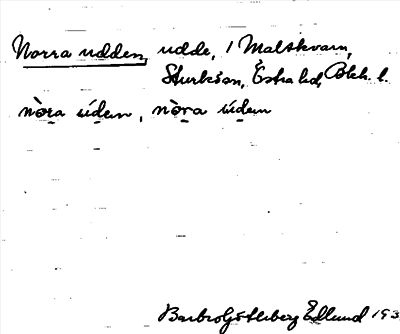 Norra udden, udde, i Malkvarn,
Sturkön, Östra hd, Blek. l.
nòra úden, nòra úden
Barbro Götlberg Edlund 193